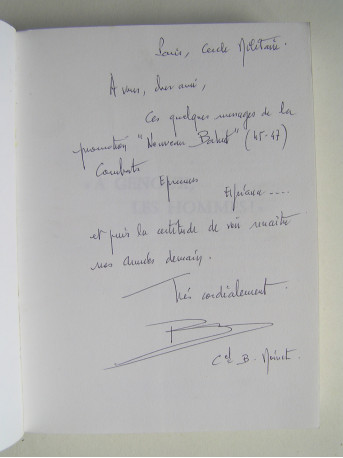 Paris, Cercle Militaire.
A vous, cher ami,
Ces quelques messages de la
promotion "Nouveau Bahut" (45-47)
Combats
Epreuves
Espérance ....
et puis la certitude de voir renaître
nos Armées demain.
Très cordialement.
Cel B.